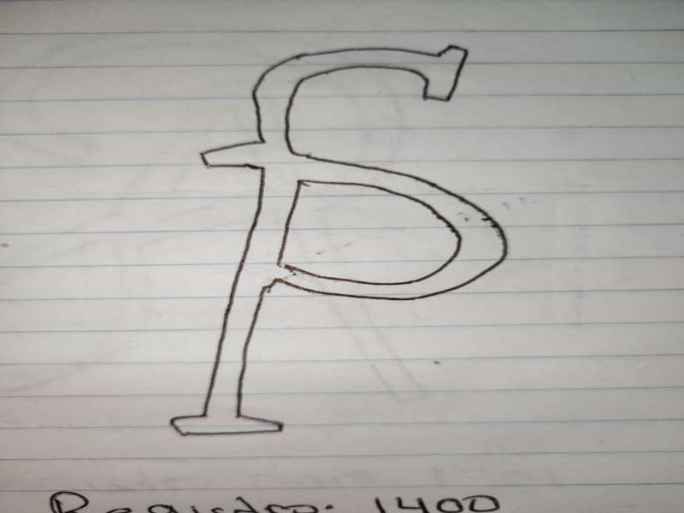 Registro: 1400